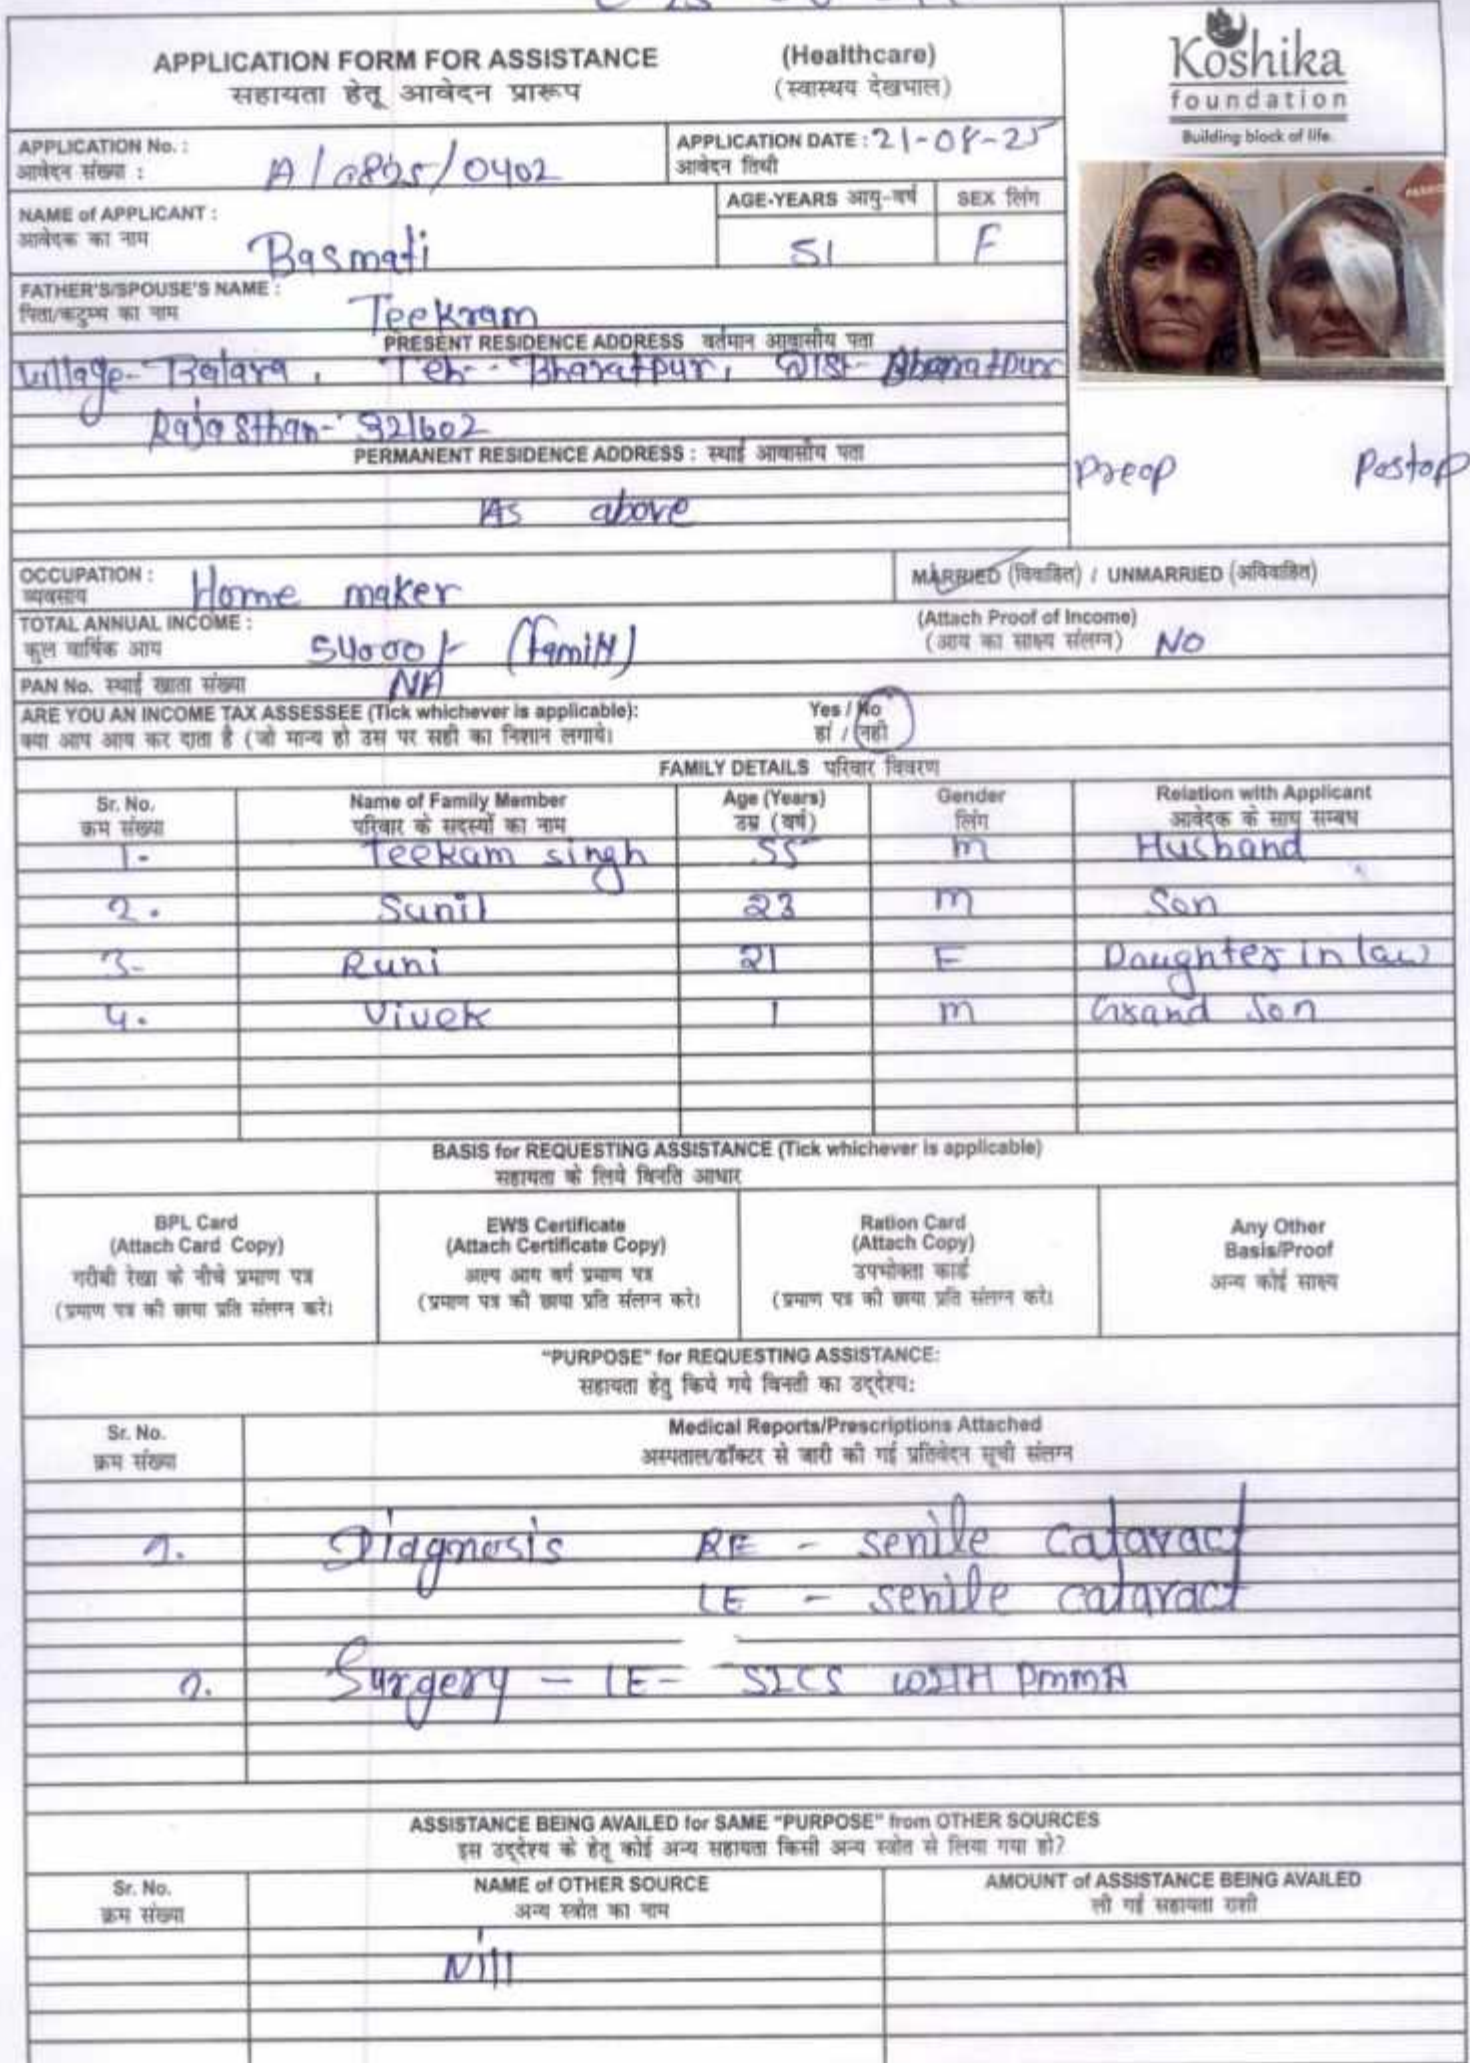 APPLICATION FORM FOR ASSISTANCE (Healthcare)
सहायता हेतू आवेदन प्रारूप (स्वास्थय देखभाल)
Koshika
foundation
Building block of life.
APPLICATION No. : A/0825/0402
आवेदन संख्या :
APPLICATION DATE : 21-08-25
आवेदन तिथी
NAME of APPLICANT : Basmati
आवेदक का नाम
AGE-YEARS आयु-वर्ष 51
SEX लिंग F
FATHER'S/SPOUSE'S NAME : Teekram
पिता/कटुम्ब का नाम
PRESENT RESIDENCE ADDRESS वर्तमान आवासीय पता
Village- Teh- Bharatpur, Dist- Bharatpur
Rajasthan- 321602
PERMANENT RESIDENCE ADDRESS : स्थाई आवासीय पता
As above
Preop Postop
OCCUPATION : Home maker
व्यवसाय
MARRIED (विवाहित) / UNMARRIED (अविवाहित)
TOTAL ANNUAL INCOME : 54000/- (Family)
कुल वार्षिक आय
(Attach Proof of Income)
(आय का साक्ष्य संलग्न) NO
PAN No. स्थाई खाता संख्या NA
ARE YOU AN INCOME TAX ASSESSEE (Tick whichever is applicable): Yes / No
क्या आप आय कर दाता है (जो मान्य हो उस पर सही का निशान लगाये। हां / नही
FAMILY DETAILS परिवार विवरण
Sr. No. Name of Family Member Age (Years) Gender Relation with Applicant
क्रम संख्या परिवार के सदस्यों का नाम उम्र (वर्ष) लिंग आवेदक के साथ सम्बध
1- Teekam singh 55 m Husband
2. Sunil 23 m Son
3- Runi 21 F Daughter in law
4. Vivek 1 m Grand Son
BASIS for REQUESTING ASSISTANCE (Tick whichever is applicable)
सहायता के लिये विनति आधार
BPL Card
(Attach Card Copy)
गरीबी रेखा के नीचे प्रमाण पत्र
(प्रमाण पत्र की छाया प्रति संलग्न करे।
EWS Certificate
(Attach Certificate Copy)
अल्प आय वर्ग प्रमाण पत्र
(प्रमाण पत्र की छाया प्रति संलग्न करे।
Ration Card
(Attach Copy)
उपभोक्ता कार्ड
(प्रमाण पत्र की छाया प्रति संलग्न करे।
Any Other
Basis/Proof
अन्य कोई साक्ष्य
"PURPOSE" for REQUESTING ASSISTANCE:
सहायता हेतु किये गये विनती का उद्देश्य:
Sr. No. Medical Reports/Prescriptions Attached
क्रम संख्या अस्पताल/डॉक्टर से जारी की गई प्रतिवेदन सूची संलग्न
1. Diagnosis RE - senile cataract
LE - senile cataract
2. Surgery - LE- SICS WITH PMMA
ASSISTANCE BEING AVAILED for SAME "PURPOSE" from OTHER SOURCES
इस उद्देश्य के हेतू कोई अन्य सहायता किसी अन्य स्त्रोत से लिया गया हो?
Sr. No. NAME of OTHER SOURCE AMOUNT of ASSISTANCE BEING AVAILED
क्रम संख्या अन्य स्त्रोत का नाम ली गई सहायता राशी
Nill